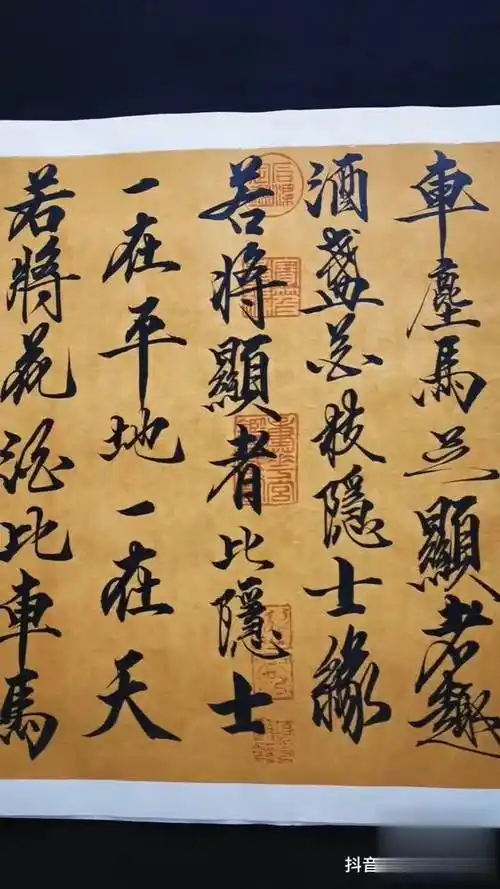 車塵馬足顯者趣
酒盞花枝隱士緣
若將顯者比隱士
一在平地一在天
若將花酒比車馬
抖音